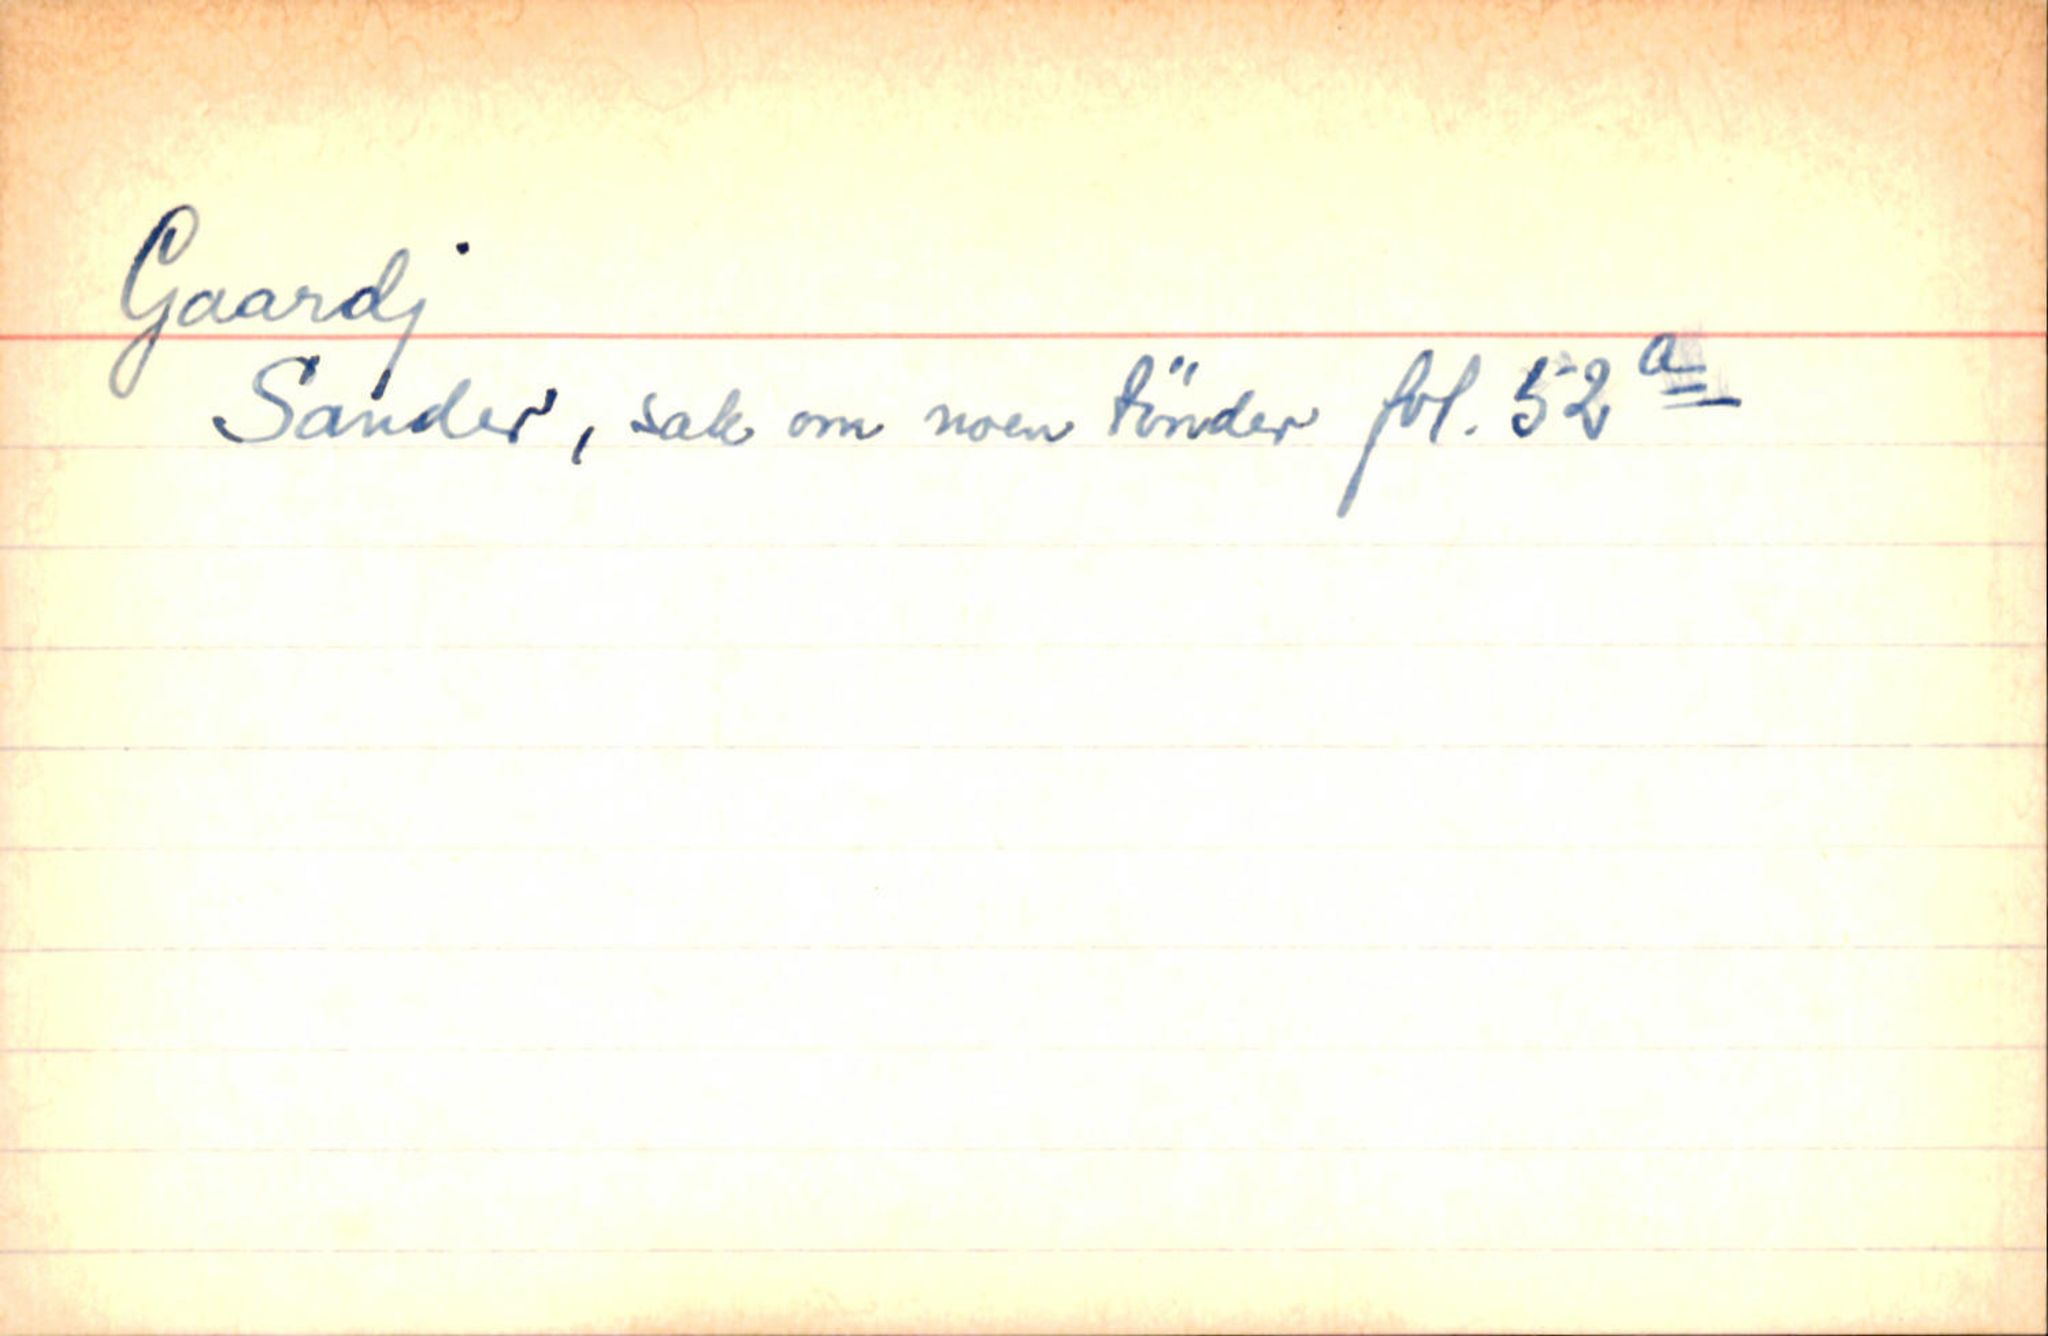 Gaardj
Sander, sak om noen tönder fol. 52 a